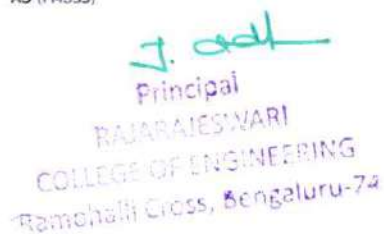 Principal
RAJARAJESWARI
COLLEGE OF ENGINEERING
Ramohalli Cross, Bengaluru-74